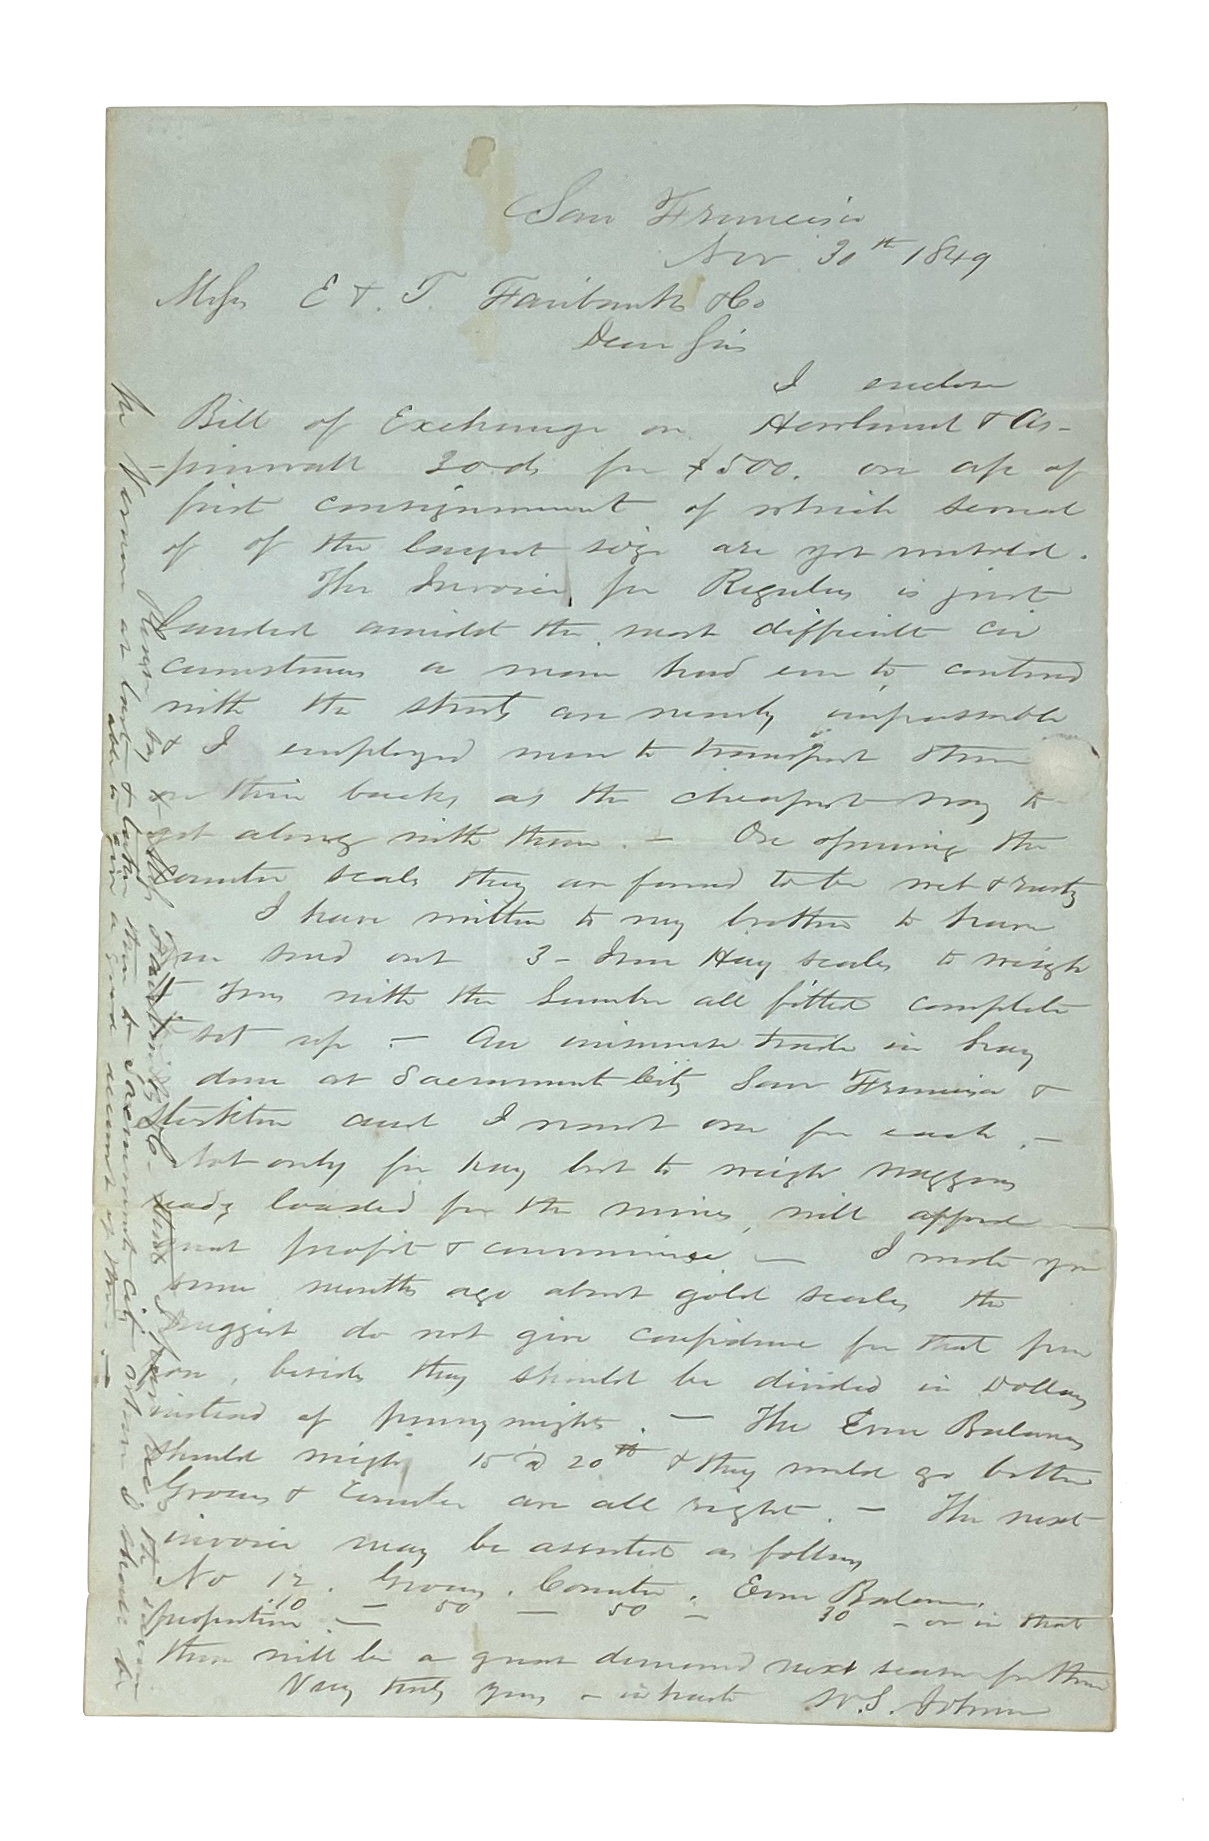 San Francisco
Nov 30th 1849
Messrs E & T. Fairbanks & Co
Dear Sirs
I enclose
Bill of Exchange on Howland & As-
-pinwall 30 ds for $500. on a/c of
first consignment of which several
of of the largest size are yet unsold.
The Invoice per Regulus is just
landed amidst the most difficult cir
cumstances a man had ever to contend
with the streets are nearly impassable
& I employed men to transport them
on their backs, as the cheapest way to
get along with them. - On opening the
Counter scales they are found to be wet & rusty
I have written to my brother to have
you send out 3 - Iron Hay scales to weigh
Tons with the Lumber all fitted complete
to set up - An immense trade in hay
done at Sacramento City San Francisco &
Stockton and I want one for each. -
Not only for hay but to weigh waggons
ready loaded for the mines, will afford
profit & commission - I wrote you
some months ago about gold scales the
Druggist do not give confidence for that purp
ose, beside they should be divided in Dollars
instead of pennyweights. - The Even Balances
should weigh 15 @ 20 lb & they would go better
Grocers & Counter are all right. - The next
invoice may be assorted as follows
No 12. Grocers. Counter. Even Balance.
10 - 50 - 50 - 30 - or in that
proportion. -
there will be a great demand next season for them
Very truly yours - in haste W. S. Johnson
Fairbanks & Co
Vernon at last & taken them to Sacramento City where I shall be
able to give a good account of them -